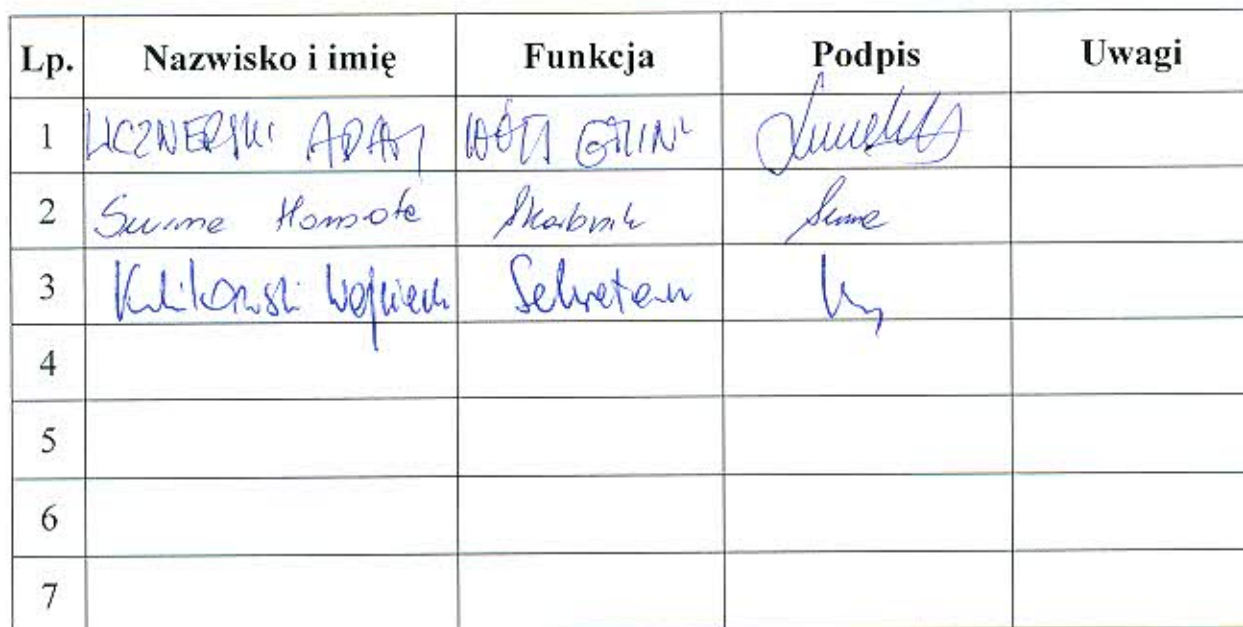 Lp. Nazwisko i imię Funkcja Podpis Uwagi
1 LICZNERSKI ADAM WÓJT GMINY
2 Skarbnik
3 Kulikowski Wojciech Sekretarz
4
5
6
7